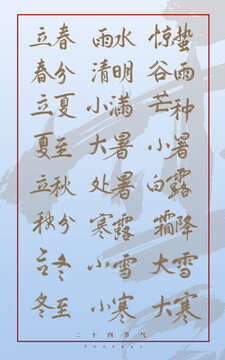 立春 雨水 惊蛰
春分 清明 谷雨
立夏 小满 芒种
夏至 大暑 小暑
立秋 处暑 白露
秋分 寒露 霜降
立冬 小雪 大雪
冬至 小寒 大寒
二十四节气